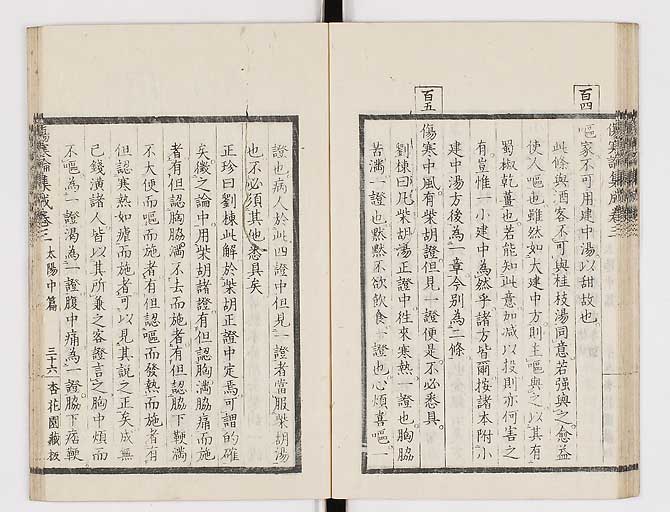 百四
嘔家不可用建中湯以甜故也
此條與酒客不可與桂枝湯同意若強與之愈益
使人嘔也雖然如大建中方則主嘔與之以其有
蜀椒乾薑也若能知此意加減以投則亦何害之
有豈惟一小建中為然乎諸方皆爾按諸本附小
建中湯方後為一章今別為二條
百五
傷寒中風有柴胡證但見一證便是不必悉具
劉棟曰凡柴胡湯正證中往來寒熱一證也胸脇
苦滿一證也默默不欲飲食一證也心煩喜嘔一
證也病人於此四證中但見一證者當服柴胡湯
也不必須其他悉具矣
正珍曰劉棟此解於柴胡正證中定焉可謂的確
矣徵之論中用柴胡諸證有但認胸滿脇痛而施
者有但認胸脇滿不去而施者有但認脇下鞕滿
不大便而嘔而施者有但認嘔而發熱而施者有
但認寒熱如瘧而施者可以見其說之正矣成無
己錢潢諸人皆以其所兼之客證言之胸中煩而
不嘔為一證渴為一證腹中痛為一證脇下痞鞕
傷寒論集成卷三 太陽中篇 三十六 杏花園藏板
傷寒論集成卷三